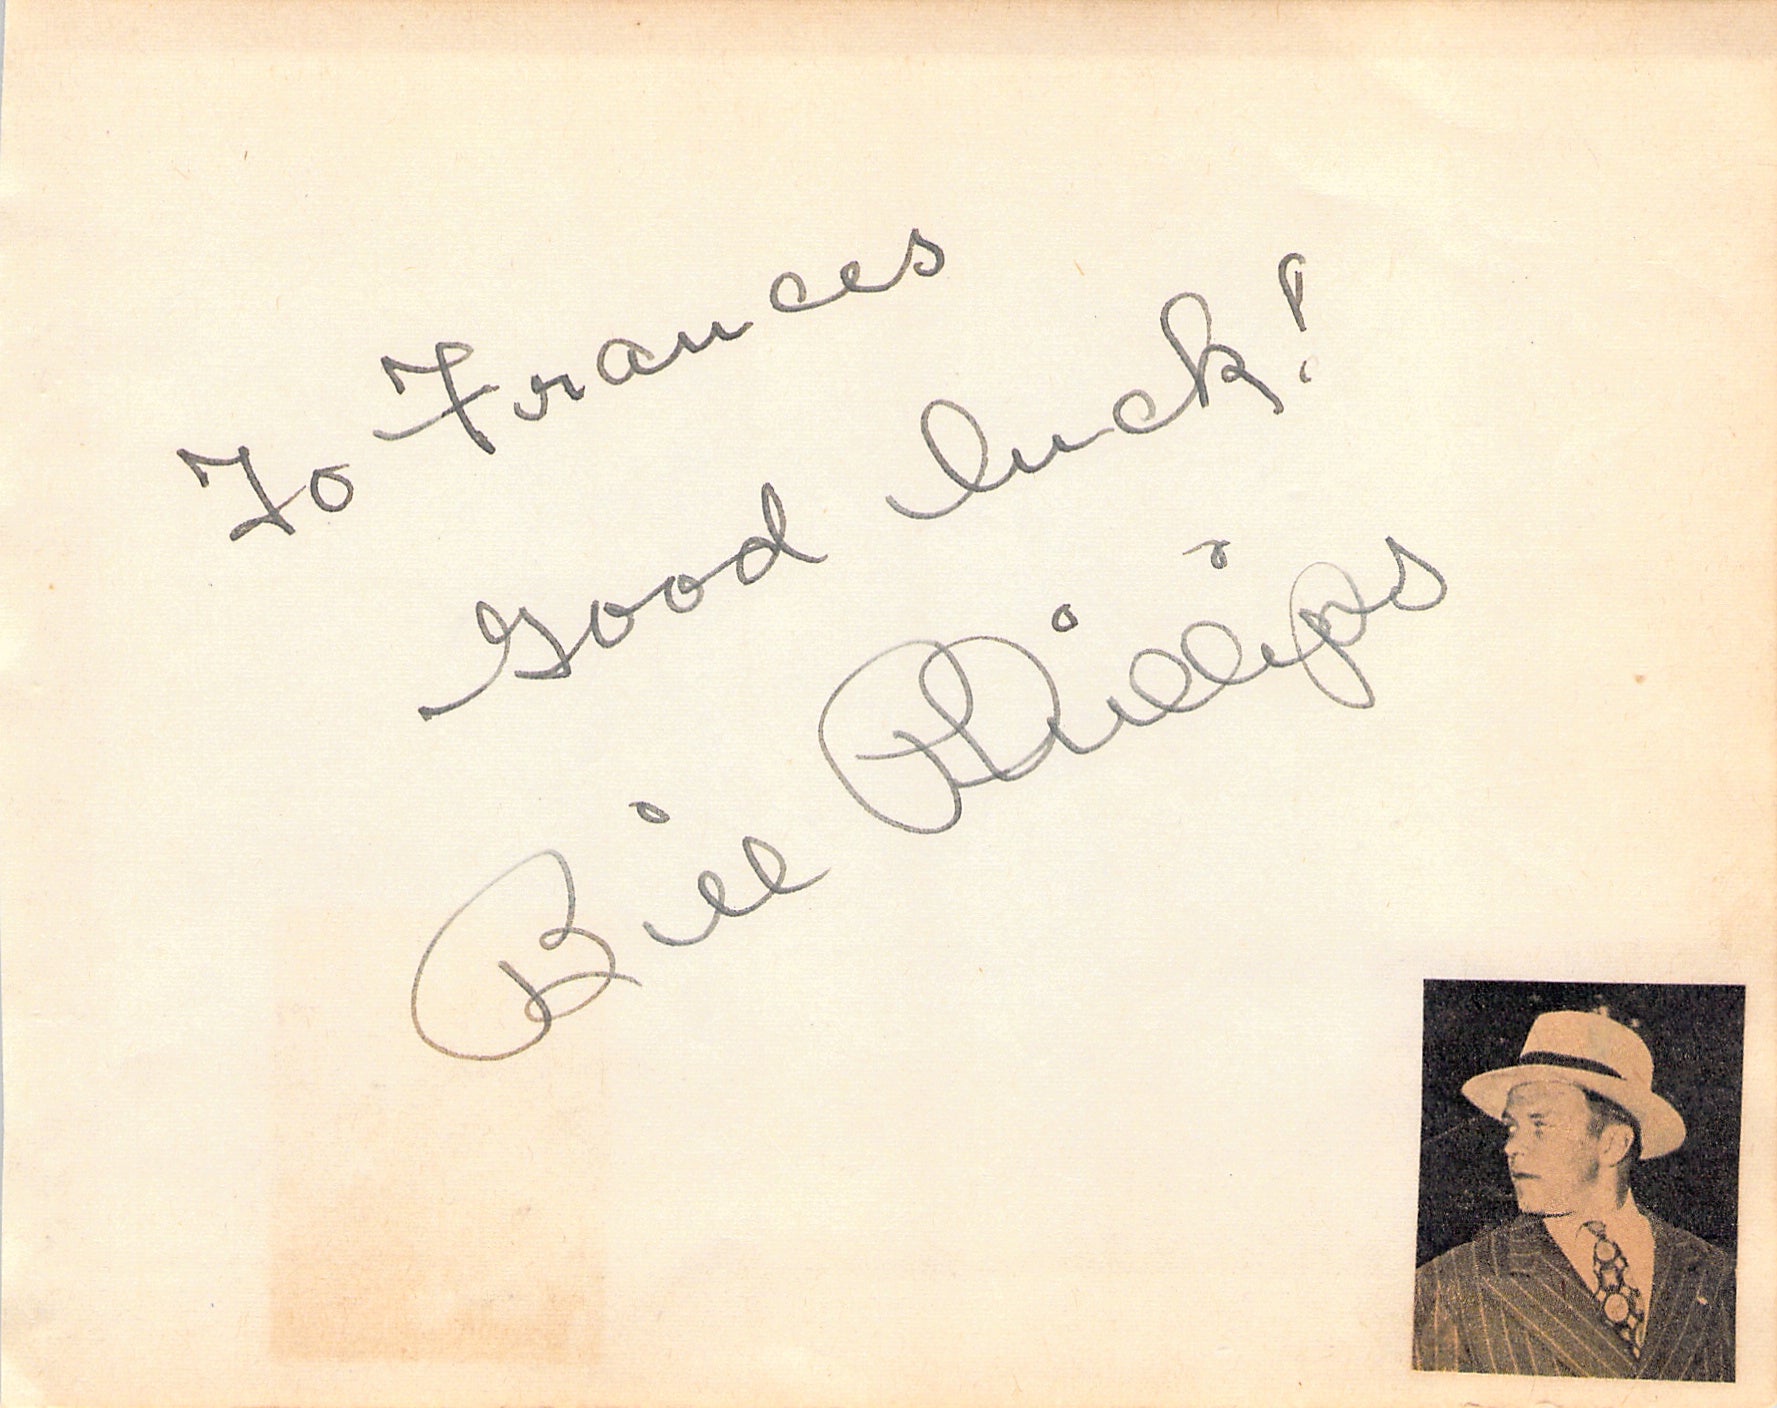 To Frances
Good luck!
Bill Phillips